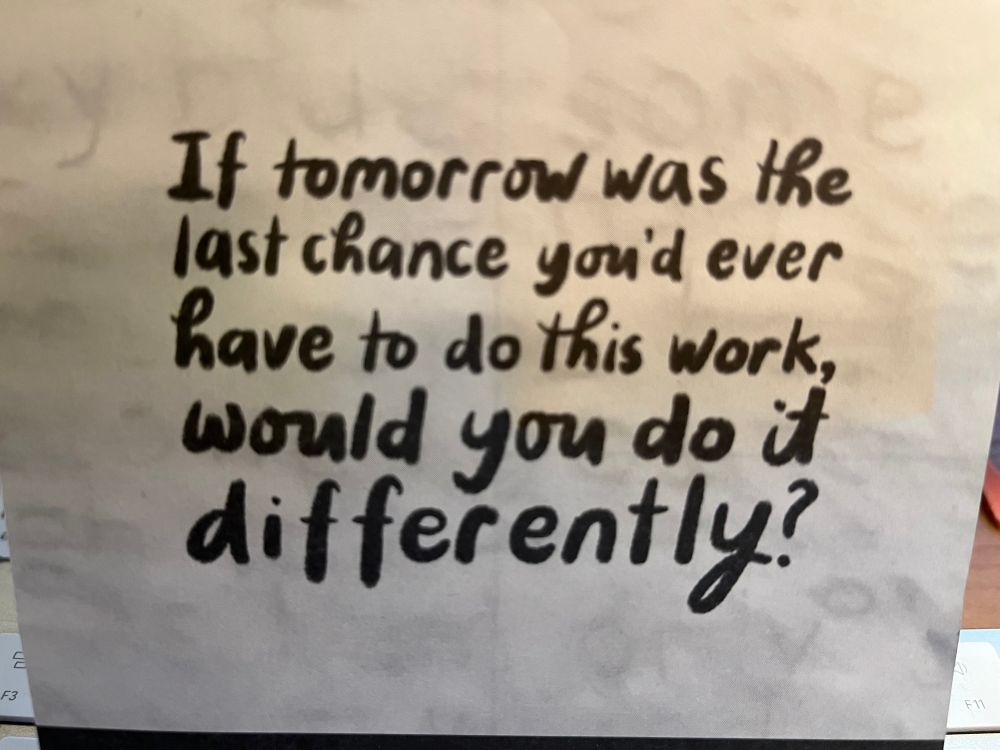 If tomorrow was the
last chance you'd ever
have to do this work,
would you do it
differently?
F3
F11